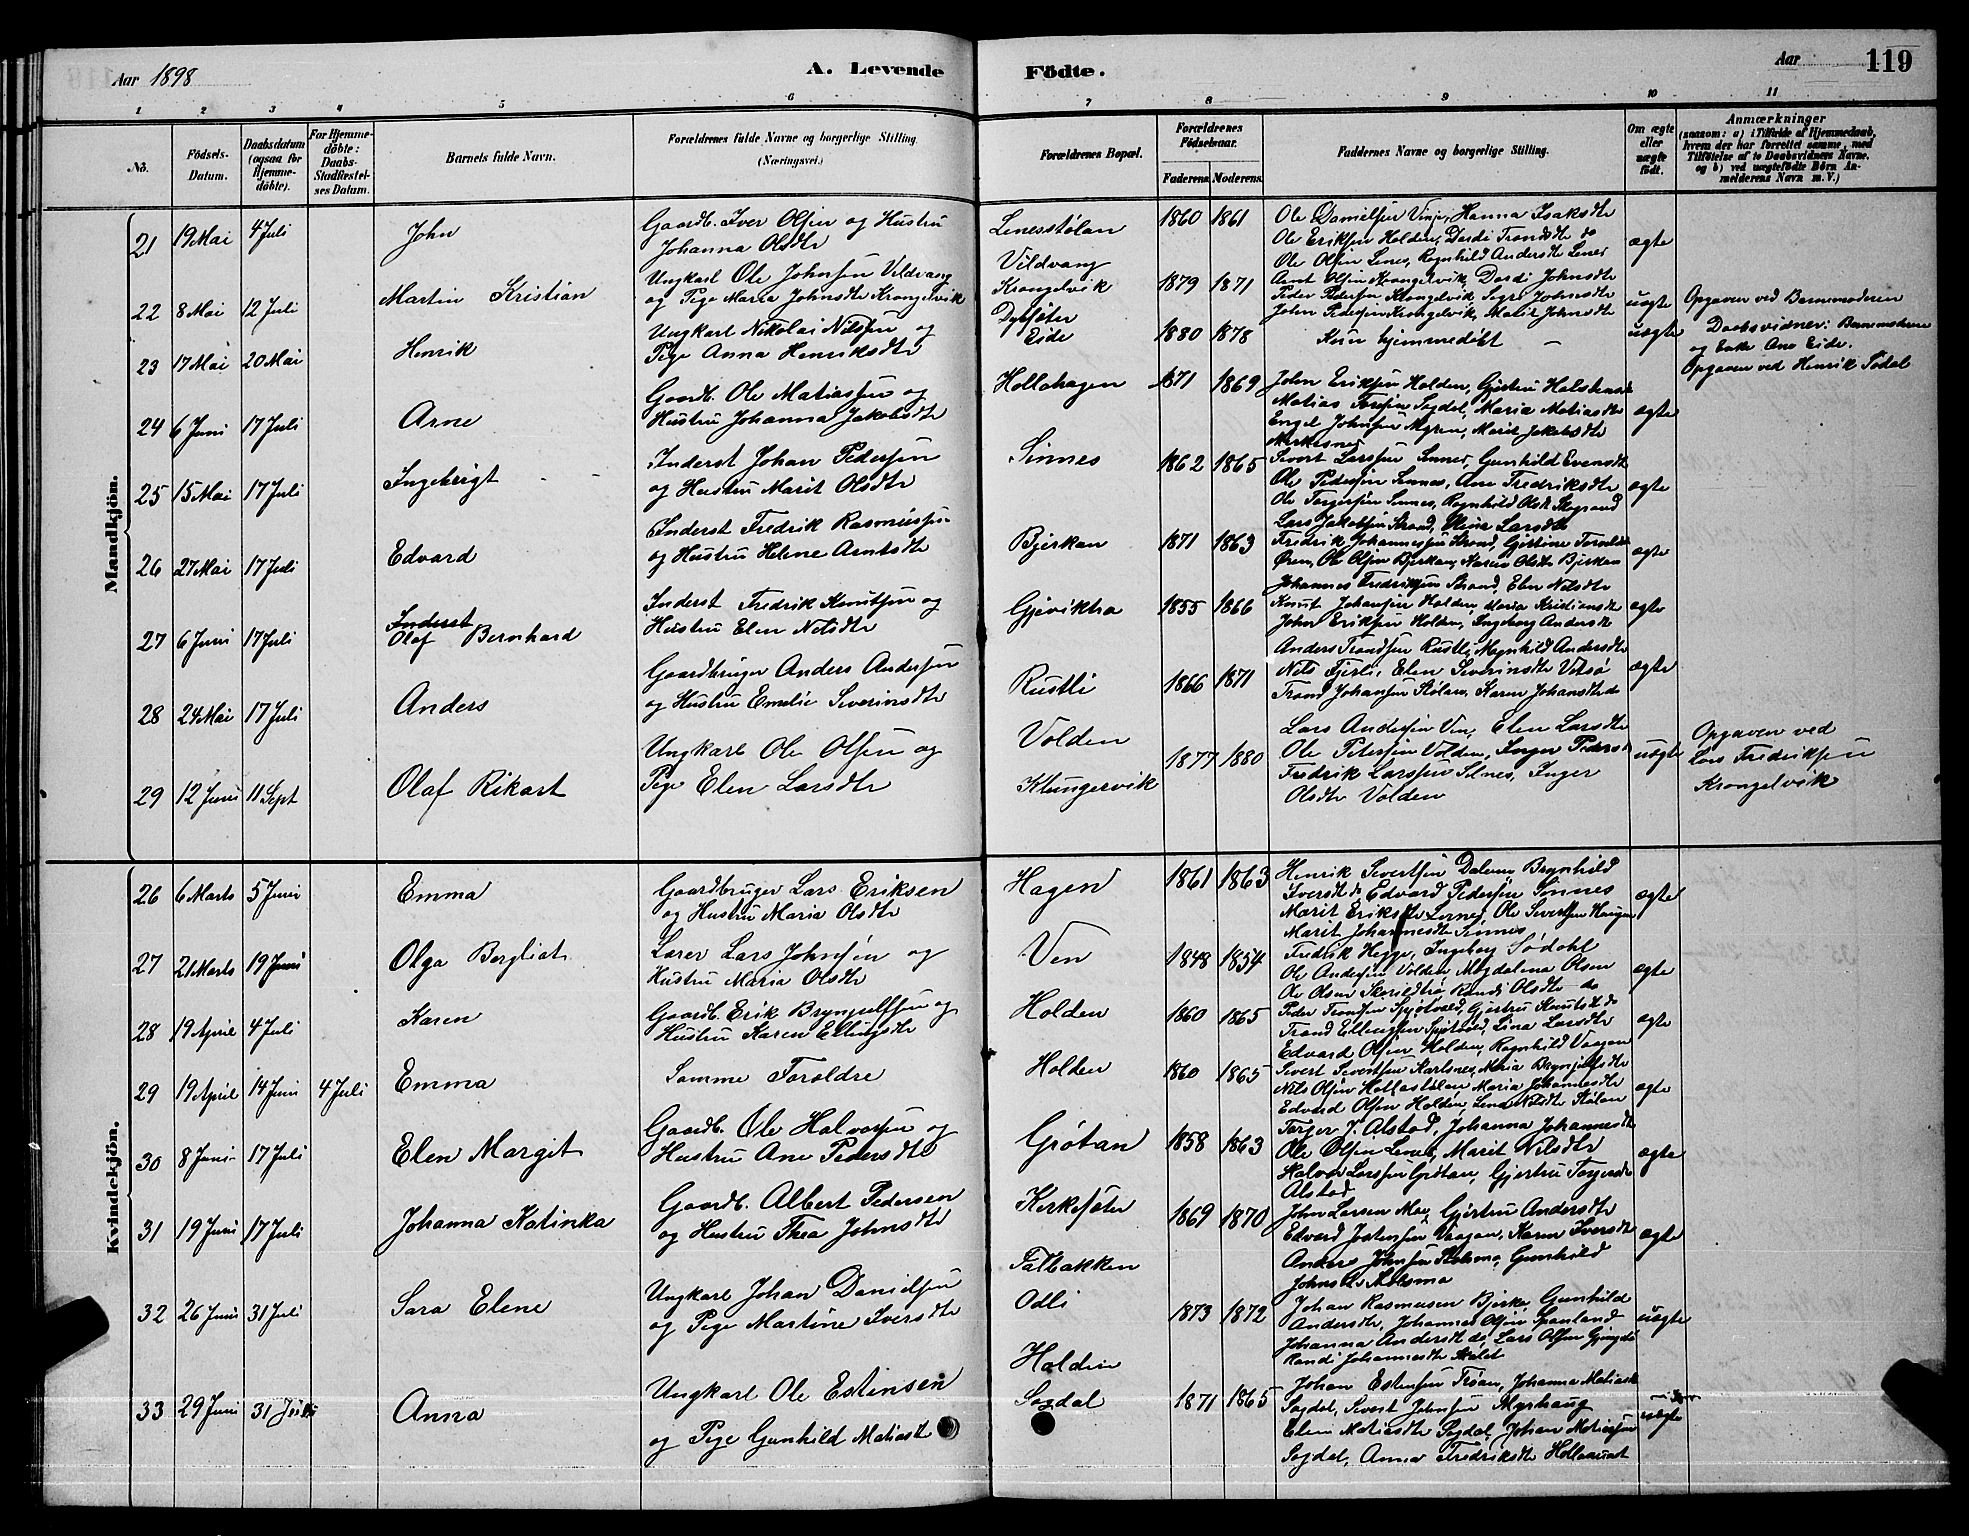 Aar 1898
A. Levende Födte.
Aar 119
1 2 3 4 5 6 7 8 9 10 11
No.
Födsels-Datum.
Daabsdatum (ogsaa for Hjemmedöbte).
For Hjemmedöbte: Daabs-Stadfæstelses Datum.
Barnets fulde Navn.
Forældrenes fulde Navne og borgerlige Stilling. (Næringsvei.)
Forældrenes Bopæl.
Forældrenes Födselsaar.
Faderens Moderens
Faddernes Navne og borgerlige Stilling.
Om ægte eller uægte födt.
Anmærkninger (saasom: a) i Tilfælde af Hjemmedaab, hvem der har forrettet samme, med Tilföielse af to Daabsvidners Navne, og b) ved uægtefödte Börn Anmelderens Navn m. V.)
Mandkjön.
21 19 Mai 4 Juli John
Gaardb. Iver Olsen og Hustru
Johanna Olsdtr
Lenesstølan 1860 1861
Ole Danielsen Vinje, Hanna Isaksdtr
Ole Eriksen Holden, Dordi Trondsdtr do
Ole Olsen Lenes, Ragnhild Andersdtr Lenes
ægte
22 8 Mai 12 Juli Martin Kristian
Ungkarl Ole Johnsen Vildvang
og Pige Maria Johnsdtr Krongelvik
Vildvang
Krongelvik 1879 1871
Arnt Olsen Krongelvik, Dordi Johnsdtr
Peder Pedersen Krongelvik, Segri Johnsdtr
John Pedersen Krongelvik, Malit Johnsdtr
uægte
Opgaven ved Barnemoderen
23 17 Mai 20 Mai Henrik
Ungkarl Nikolai Nilssen og
Pige Anna Henriksdtr
Eide 1880 1878
Kun hjemmedøbt –
uægte
Daabsvidner: Barnemoderen
og Enke Ane Eide.
Opgaven ved Henrik Sødal
24 6 Juni 17 Juli Arne
Gaardb. Ole Matiassen og
Hustru Johanna Jakobsdtr
Hollahagen 1871 1869
John Eriksen Holden, Gjertru
Matias Toresen Sogdel, Maria Matiasdtr
Engel Johnsen Myren, Marit Jakobsdtr
ægte
25 15 Mai 17 Juli Ingebrigt
Inderst Johan Pedersen
og Hustru Marit Olsdtr
Sinnes 1862 1865
Sivert Larssen Sinnes, Gunhild Evensdtr
Ole Pedersen Sinnes, Ane Fredriksdtr
Ole Torgersen Sinnes, Ragnhild Olsdtr
ægte
26 27 Mai 17 Juli Edvard
Inderst Fredrik Rasmussen
og Hustru Helene Arntsdtr
Bjerkan 1871 1863
Lars Jakobsen Strand, Olina Larsdtr
Fredrik Johannessen Strand, Gjertine
Øren, Ole Olsen Bjerkan, Karen Olsdtr Bjerkan
ægte
27 6 Juni 17 Juli Inderst
Olaf Bernhard
Inderst Fredrik Knutsen og
Hustru Elen Nilsdtr
Gjeviktrø 1855 1866
Johannes Fredriksen Strand, Elen Nilsdtr
Knut Johansen Holden, Maria Kristiansdtr
John Eriksen Holden, Ingeborg Andersdtr
ægte
28 24 Mai 17 Juli Anders
Gaardbruger Anders Andersen
og Hustru Emelie Severinsdtr
Rustli 1866 1871
Anders Trondsen Rustli, Magnhild Andersdtr
Nils Fjerli, Elen Severinsdtr Vitsø
Trond Johansen Stølan, Karen Johansdtr do
ægte
29 12 Juni 11 Sept Olaf Rikart
Ungkarl Ole Olsen og
Pige Elen Larsdtr
Volden
Klungervik 1877 1880
Lars Andersen Ven, Elen Larsdtr
Ole Petersen Volden, Inger Pedersdtr
Fredrik Larssen Selnes, Inger
Olsdtr Volden
uægte
Opgaven ved
Lars Fredriksen
Krongelvik
Kvindekjön.
26 6 Marts 5 Juni Emma
Gaardbruger Lars Eriksen
og Hustru Maria Olsdtr
Hagen 1861 1863
Henrik Sivertsen Dalum Brynhild
Iversdtr do Edvard Pedersen Sinnes
Marit Eriksdtr Lernes, Ole Sivertsen Haugen
Marit Johannesdtr Sinnes
ægte
27 21 Marts 19 Juni Olga Bergliot
Lærer Lars Johnsen og
Hustru Maria Olsdtr
Ven 1848 1854
Fredrik Hegge, Ingeborg Sødahl
Ole Andersen Volden, Magdalena Olsen
Ole Olsen Randi Olsdtr do
ægte
28 19 April 4 Juli Karen
Gaardb. Erik Brynjulfsen og
Hustru Karen Ellingsdtr
Holden 1860 1865
Peder Tronsen Spjøtvold, Gjertru Knutsdtr do
Trond Ellingsen Spjøtvold, Lina Larsdtr
Edvard Olsen Holden, Ragnhild Vaagan
ægte
29 19 April 14 Juni 4 Juli Emma
Samme Forældre
Holden 1860 1865
Sivert Sivertsen Karlsnes, Maria Brynjulfsdtr
Nils Olsen Hollastølan Maria Johannesdtr
Edvard Olsen Holden, Lena Nilsdtr Stølan
ægte
30 8 Juni 17 Juli Elen Margit
Gaardb. Ole Halvorsen og
Hustru Ane Pedersdtr
Grøtan 1858 1863
Torger J. Alstad, Johanna Johannesdtr
Ole Olsen Lenes, Marit Nilsdtr
Halvor Larssen Grøtan, Gjertru Torgersdtr
Alstad
ægte
31 19 Juni 17 Juli Johanna Katinka
Gaardb. Albert Pedersen
og Hustru Thea Johnsdtr
Kerkesæter
Talbakken 1869 1870
John Larsen Moe, Gjertru Andersdtr
Edvard Vaagan, Karen Iversdtr
Anders Johnsen Gunhild
Johnsdtr
ægte
32 26 Juni 31 Juli Sara Elene
Ungkarl Johan Danielsen
og Pige Martine Iversdtr
Odli
Holden 1873 1872
Johan Rasmussen Bjerke, Gunhild
Andersdtr, Johannes Olsen
Johanna Andersdtr do, Lars Olsen
Randi Johannesdtr
uægte
33 29 Juni 31 Juli Anna
Ungkarl Ole Estensen
og Pige Gunhild Matiasdtr
Sogdal 1871 1865
Johan Estensen Trøan, Johanna Matiasdtr
Sogdal, Sivert Johnsen Myrhaug
Elen Matiasdtr Sogdal, Johan Matiassen
Sogdal, Anna Fredriksdtr
uægte